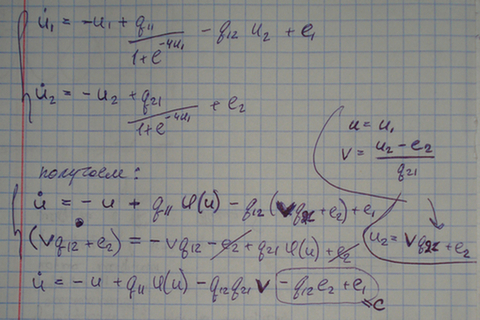 u̇₁ = -u₁ + q₁₁/(1+e^(-4u₁)) - q₁₂ u₂ + e₁
u̇₂ = -u₂ + q₂₁/(1+e^(-4u₁)) + e₂
u = u₁
v = (u₂ - e₂)/q₂₁
получаем:
u̇ = -u + q₁₁ φ(u) - q₁₂(v q₂₁ + e₂) + e₁
(v q₁₂ + e₂)˙ = -v q₁₂ - e₂ + q₂₁ φ(u) + e₂
u₂ = v q₂₁ + e₂
u̇ = -u + q₁₁ φ(u) - q₁₂ q₂₁ v - q₁₂ e₂ + e₁
= c